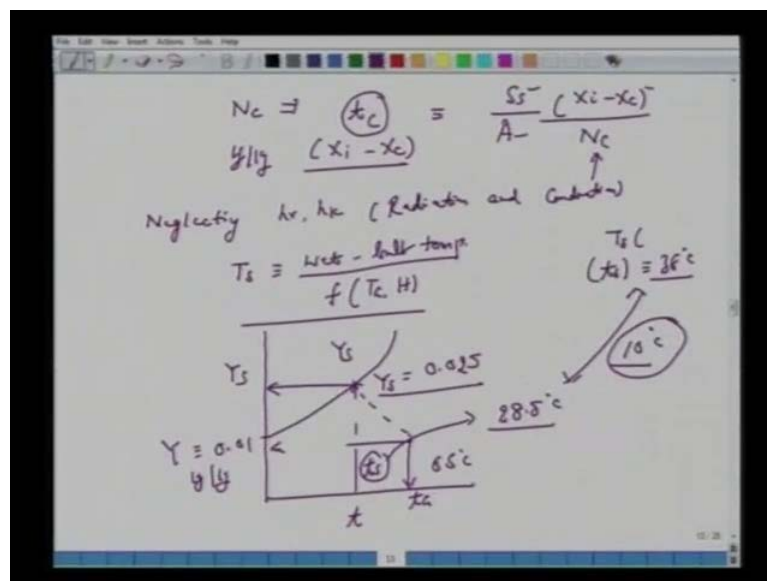 File Edit View Insert Actions Tools Help
Nc ⇒ tc ≡ Ss (Xi-Xc)
A Nc
(Xi - Xc)
Neglecting hr, hk (Radiation and Conduction)
Ts ≡ Wet-bulb temp.
f(TG H)
Ts (
(ts) ≡ 38°c
10°c
Ys
Ys
Ys = 0.025
28.5°c
Y ≡ 0.01
ts
65°c
t
tG
13